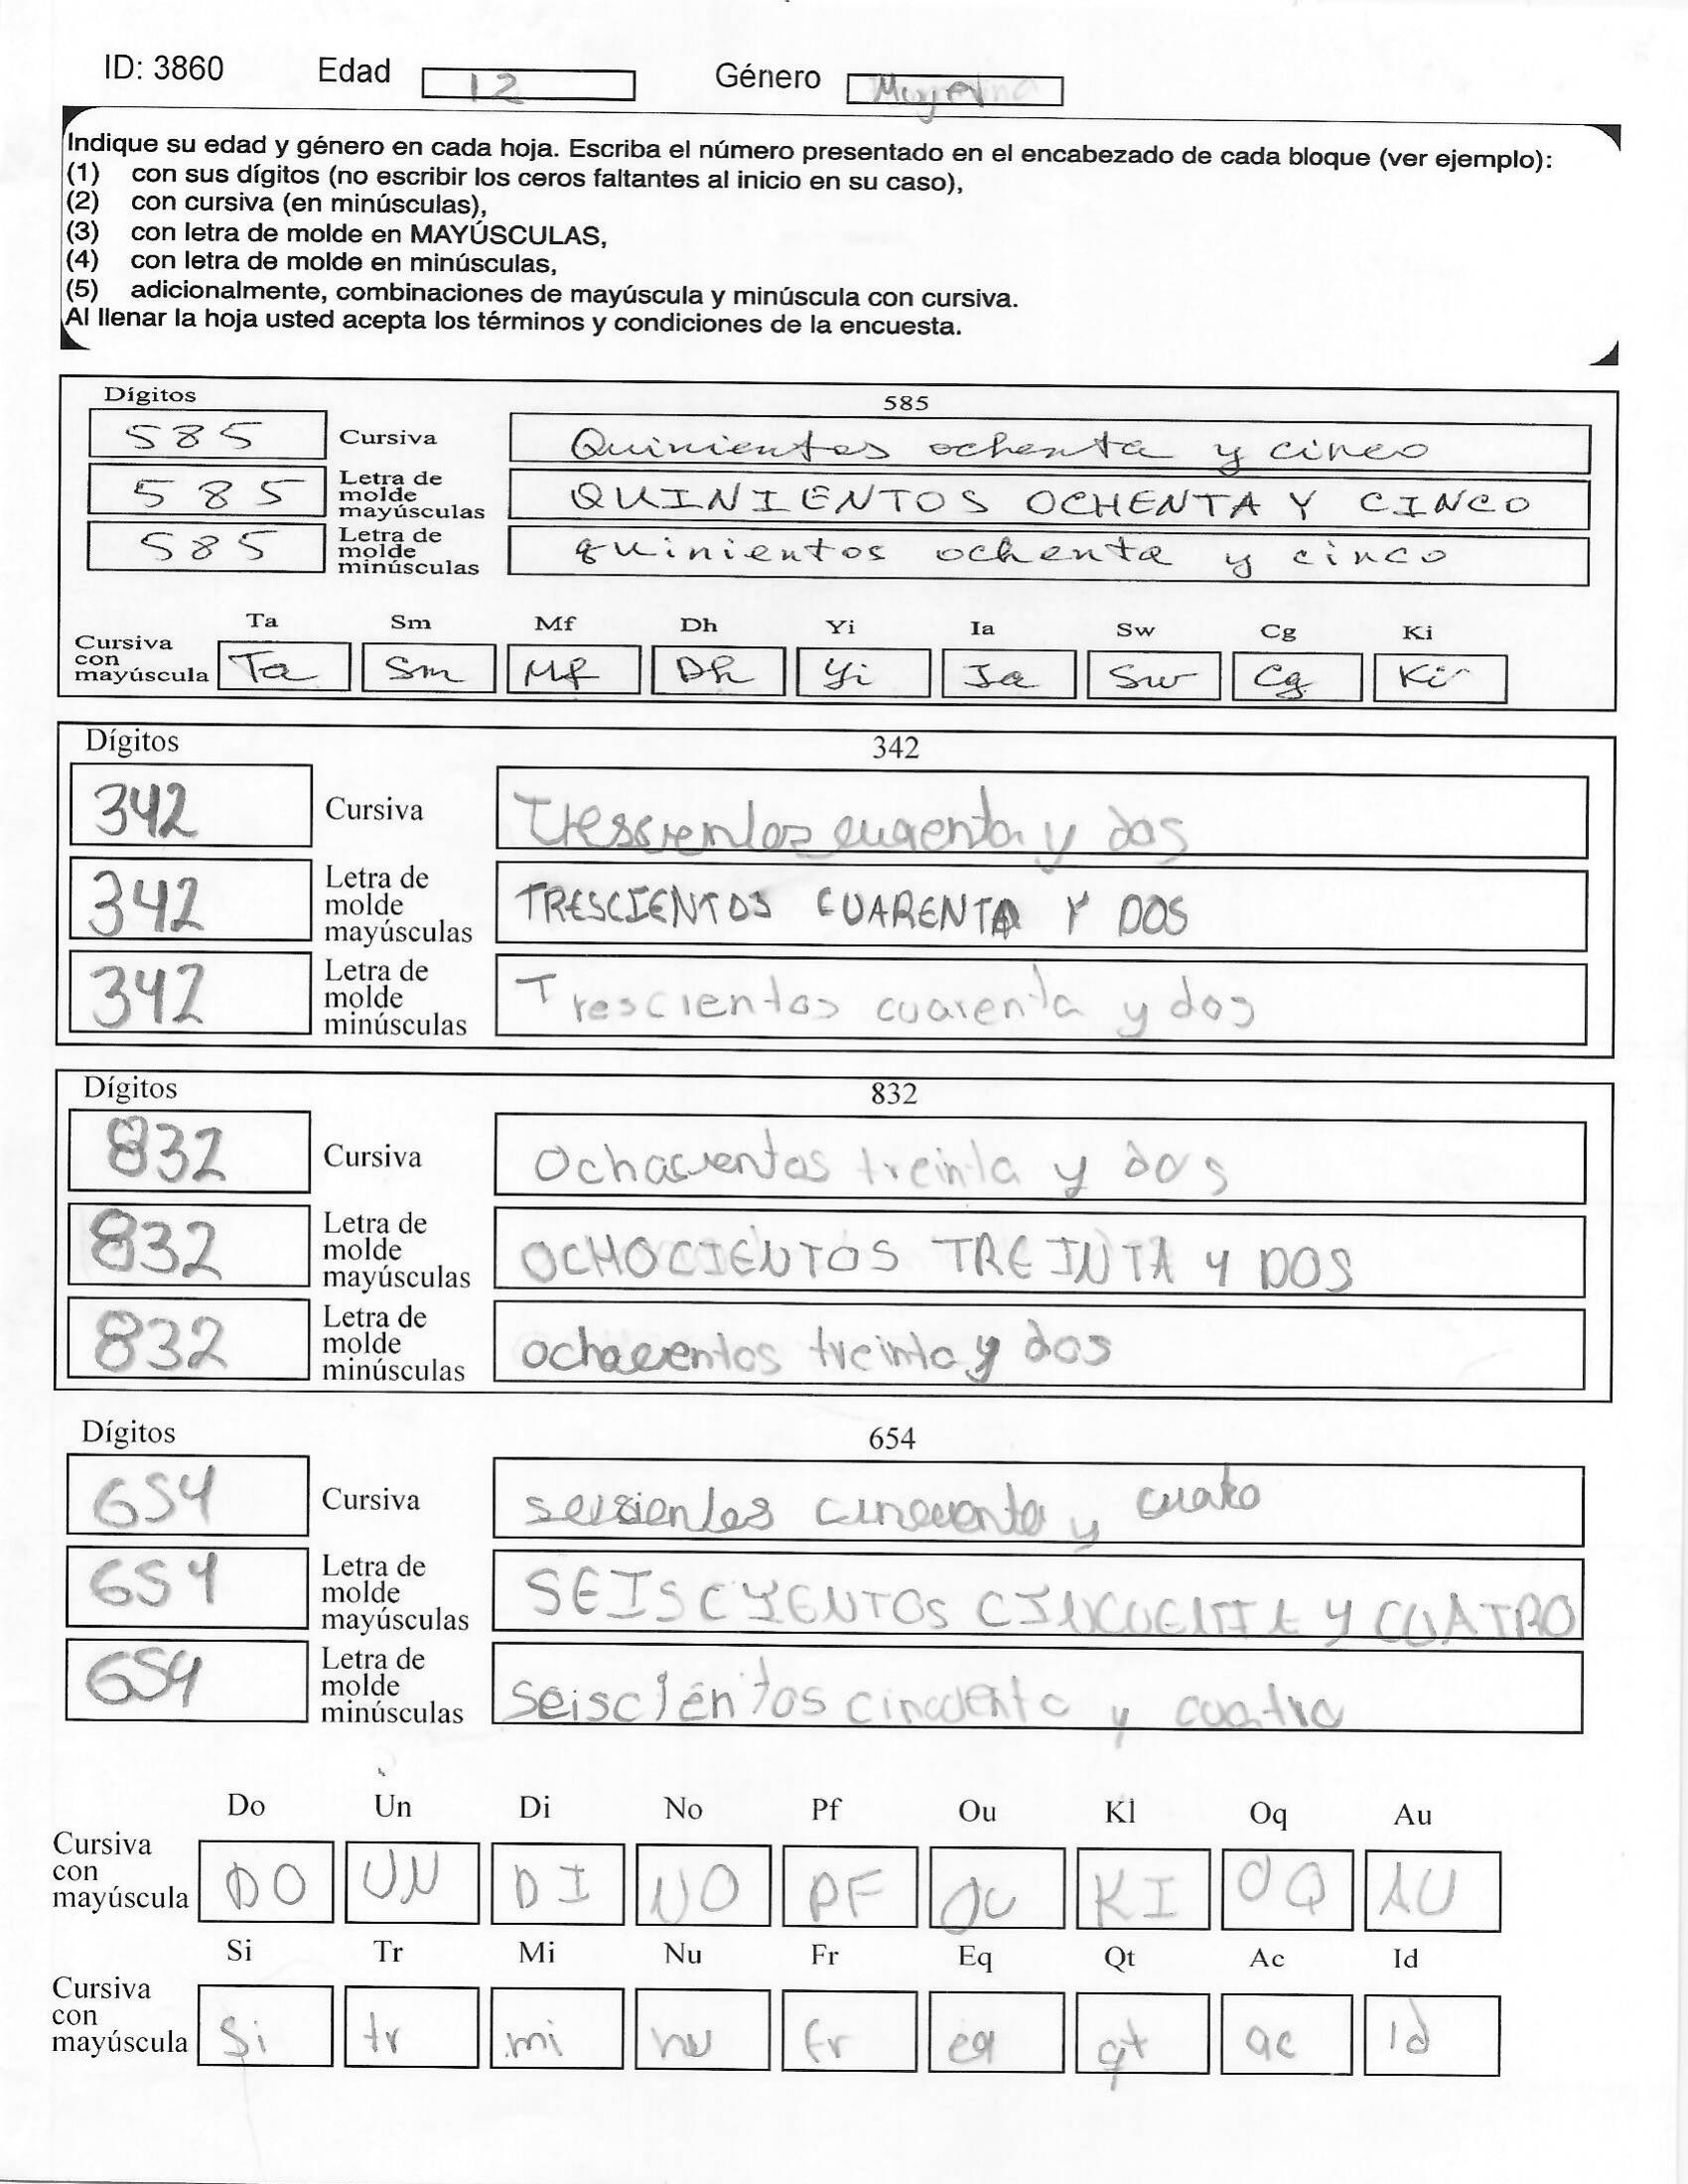 ID: 3860 Edad 12 Género Mujer
Indique su edad y género en cada hoja. Escriba el número presentado en el encabezado de cada bloque (ver ejemplo):
(1) con sus dígitos (no escribir los ceros faltantes al inicio en su caso),
(2) con cursiva (en minúsculas),
(3) con letra de molde en MAYÚSCULAS,
(4) con letra de molde en minúsculas,
(5) adicionalmente, combinaciones de mayúscula y minúscula con cursiva.
Al llenar la hoja usted acepta los términos y condiciones de la encuesta.
Dígitos 585
585 Cursiva Quinientos ochenta y cinco
585 Letra de molde mayúsculas QUINIENTOS OCHENTA Y CINCO
585 Letra de molde minúsculas quinientos ochenta y cinco
Ta Sm Mf Dh Yi Ia Sw Cg Ki
Cursiva con mayúscula Ta Sm Mf Dh Yi Ia Sw Cg Ki
Dígitos 342
342 Cursiva y dos
342 Letra de molde mayúsculas TRESCIENTOS CUARENTA Y DOS
342 Letra de molde minúsculas Trescientos cuarenta y dos
Dígitos 832
832 Cursiva treinta y dos
832 Letra de molde mayúsculas OCHOCIENTOS TREINTA Y DOS
832 Letra de molde minúsculas treinta y dos
Dígitos 654
654 Cursiva y
654 Letra de molde mayúsculas Y CUATRO
654 Letra de molde minúsculas seiscientos y cuatro
Do Un Di No Pf Ou Kl Oq Au
Cursiva con mayúscula DO UN DI NO PF OU KI OQ AU
Si Tr Mi Nu Fr Eq Qt Ac Id
Cursiva con mayúscula Si tr mi nu fr eq qt ac Id